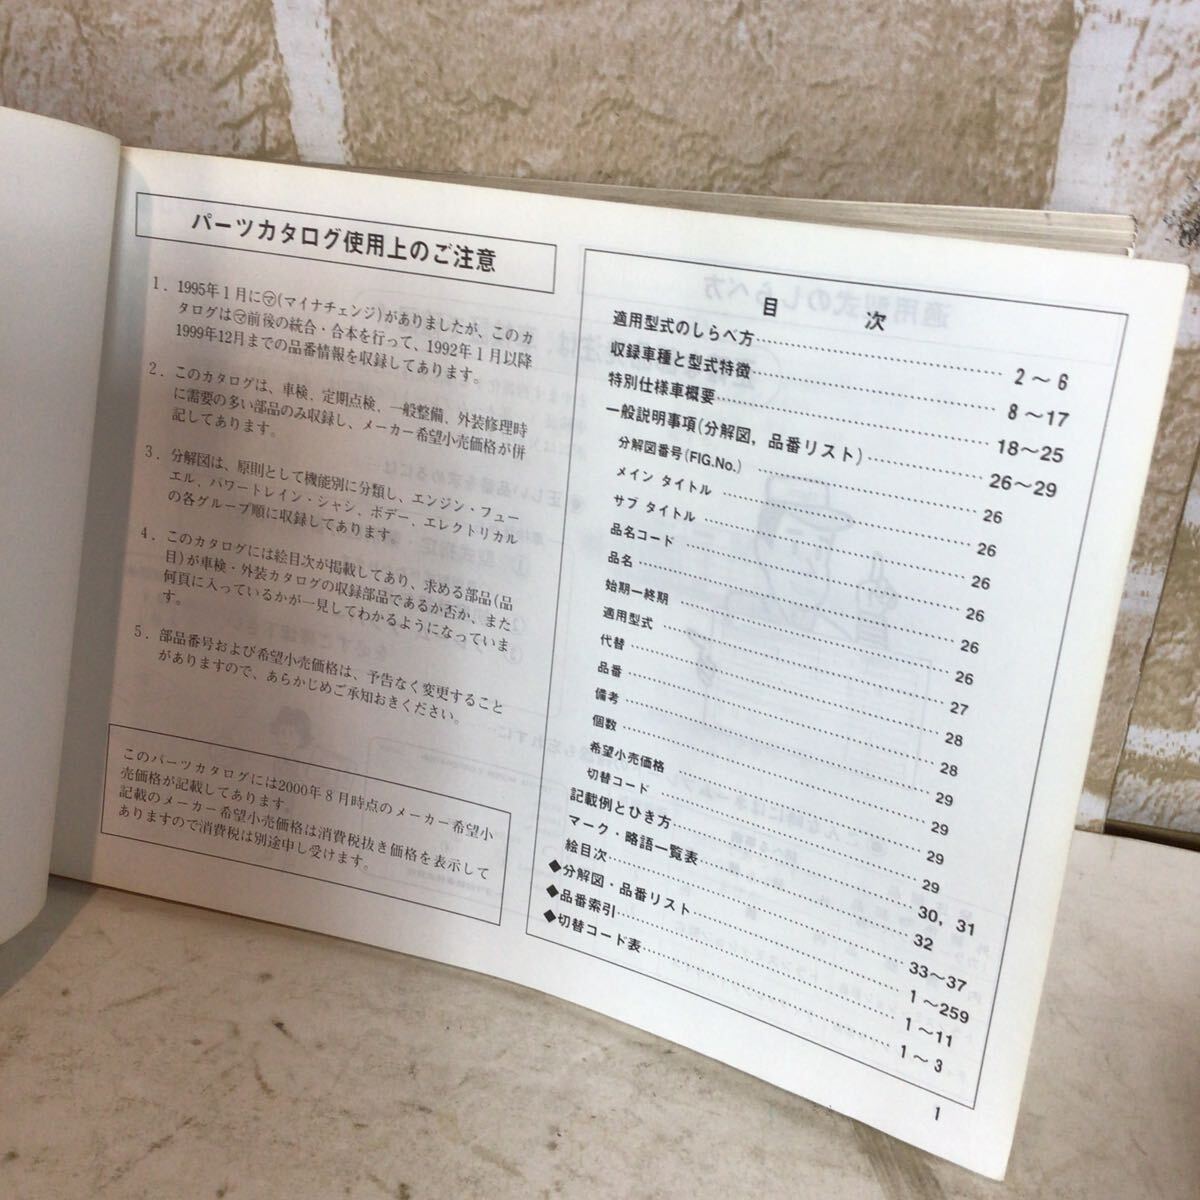 パーツカタログ使用上のご注意
1. 1995年1月に㋮(マイナチェンジ)がありましたが、このカ
タログは㋮前後の統合・合本を行って、1992年1月以降
1999年12月までの品番情報を収録してあります。
2. このカタログは、車検、定期点検、一般整備、外装修理時
に需要の多い部品のみ収録し、メーカー希望小売価格が併
記してあります。
3. 分解図は、原則として機能別に分類し、エンジン・フュー
エル、パワートレイン・シャシ、ボデー、エレクトリカル
の各グループ順に収録してあります。
4. このカタログには絵目次が掲載してあり、求める部品(品
目)が車検・外装カタログの収録部品であるか否か、また
何頁に入っているかが一見してわかるようになっていま
す。
5. 部品番号および希望小売価格は、予告なく変更すること
がありますので、あらかじめご承知おきください。
このパーツカタログには2000年8月時点のメーカー希望小
売価格が記載してあります。
記載のメーカー希望小売価格は消費税抜き価格を表示して
ありますので消費税は別途申し受けます。
目 次
適用型式のしらべ方 2〜6
収録車種と型式特徴 8〜17
特別仕様車概要 18〜25
一般説明事項(分解図, 品番リスト) 26〜29
分解図番号(FIG.No.) 26
メイン タイトル 26
サブ タイトル 26
品名コード 26
品名 26
始期ー終期 26
適用型式 27
代替 28
品番 28
備考 29
個数 29
希望小売価格 29
切替コード 29
記載例とひき方 30, 31
マーク・略語一覧表 32
絵目次 33〜37
◆分解図・品番リスト 1〜259
◆品番索引 1〜11
◆切替コード表 1〜3
1